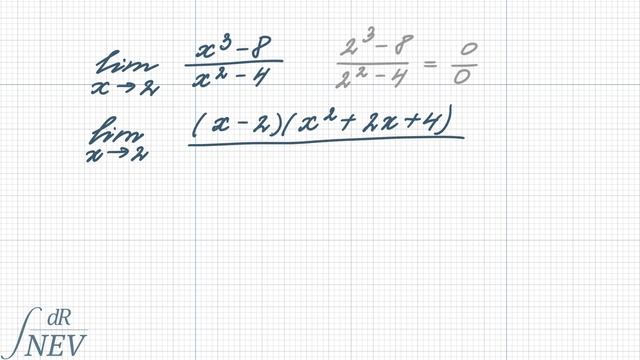 lim x→2 x³-8 / x²-4 2³-8 / 2²-4 = 0/0
lim x→2 (x-2)(x²+2x+4)
∫ dR
NEV